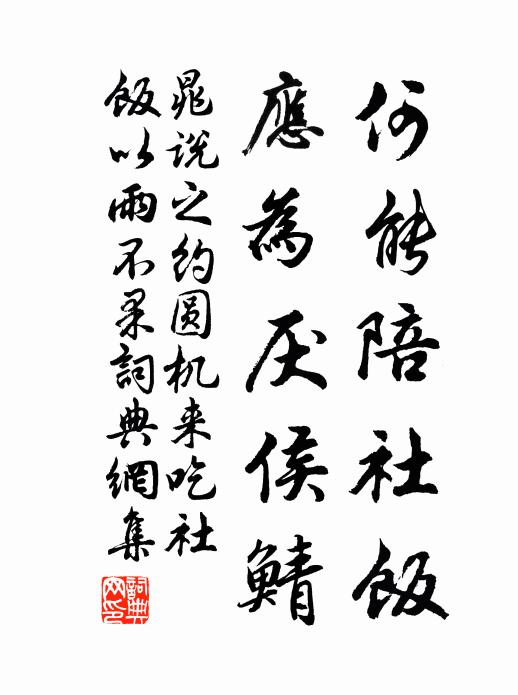 何能陪社飯
應為厌侯鯖
晁說之约圆机来吃社
飯以雨不果詞典網集
詞典
网印